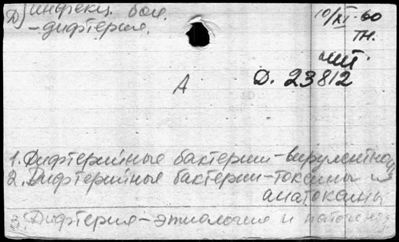 Д) инфекц. бол.
- дифтерия.
10/XI-60
тн.
шт.
Д. 23812
А
1. Дифтерийные бактерии - вирулентность
2. Дифтерийные бактерии - токсины и
анатоксины
3. Дифтерия - этиология и патогенез